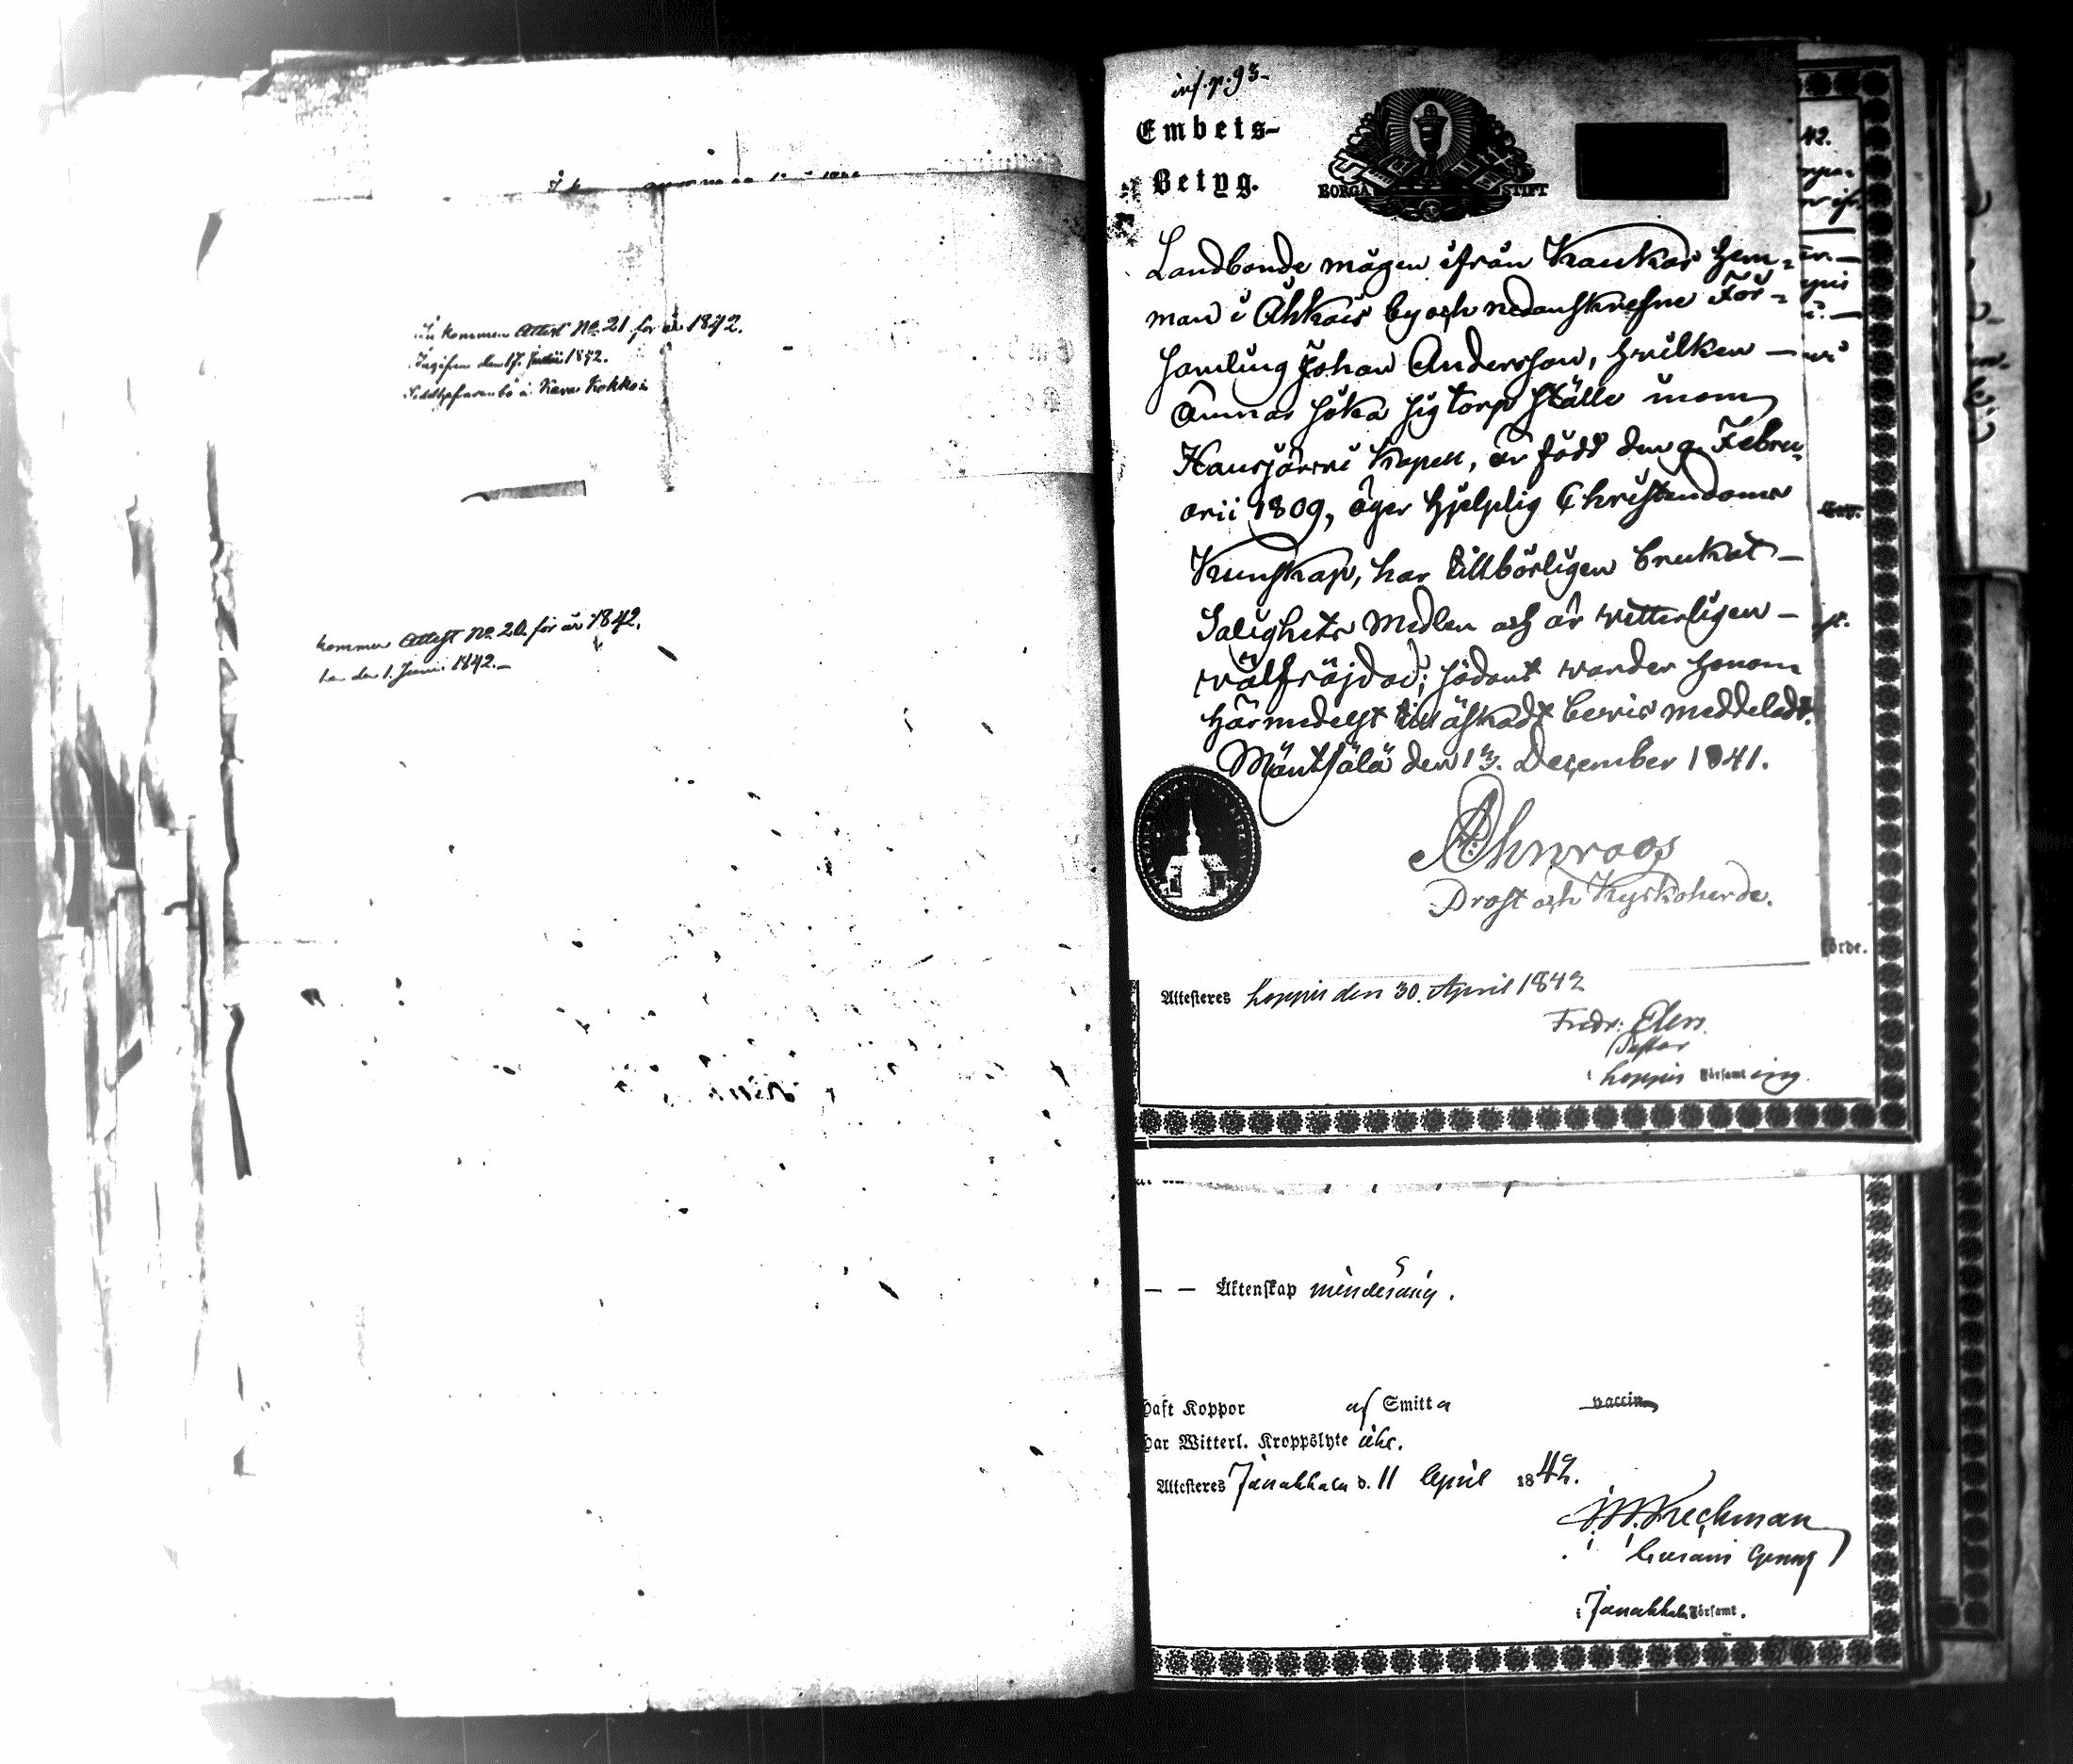 In kommen Attest No. 21 för år 1842.
Ingifven den 17. Junii 1842.
kommen Attest No. 20 för år 1842.
den 1. Junii 1842.
inf. p. 93
Embets-
Betyg.
BORGÅ STIFT
Landbonde mågen ifrån Kaukas Hem-
man i Åhkois by och nedanskrefne För-
samling Johan Andersson, hvilken —
ämnar söka sig torp ställe inom
Hausjärvi Kapell, är född den 9. Febru-
arii 1809, äger hjelplig Christendoms
Kunskap, har tillbörligen brukat —
Salighets Medlen och är vetterligen —
välfräjdad; sådant varder honom
härmedelst till äskadt bevis meddeladt.
Mäntsälä den 13. December 1841.
Ahnroos
Prost och Kyrkoherde.
Attesteres Loppis den 30. April 1842
Fredr. Elers
Pastor
i Loppis Församling.
— — Äktenskap minderårig.
Haft Koppor af Smitta vaccin
Har Witterl. Kroppslyte icke.
Attesteres Janakkala d. 11 April 1842.
Janakkala Församl.